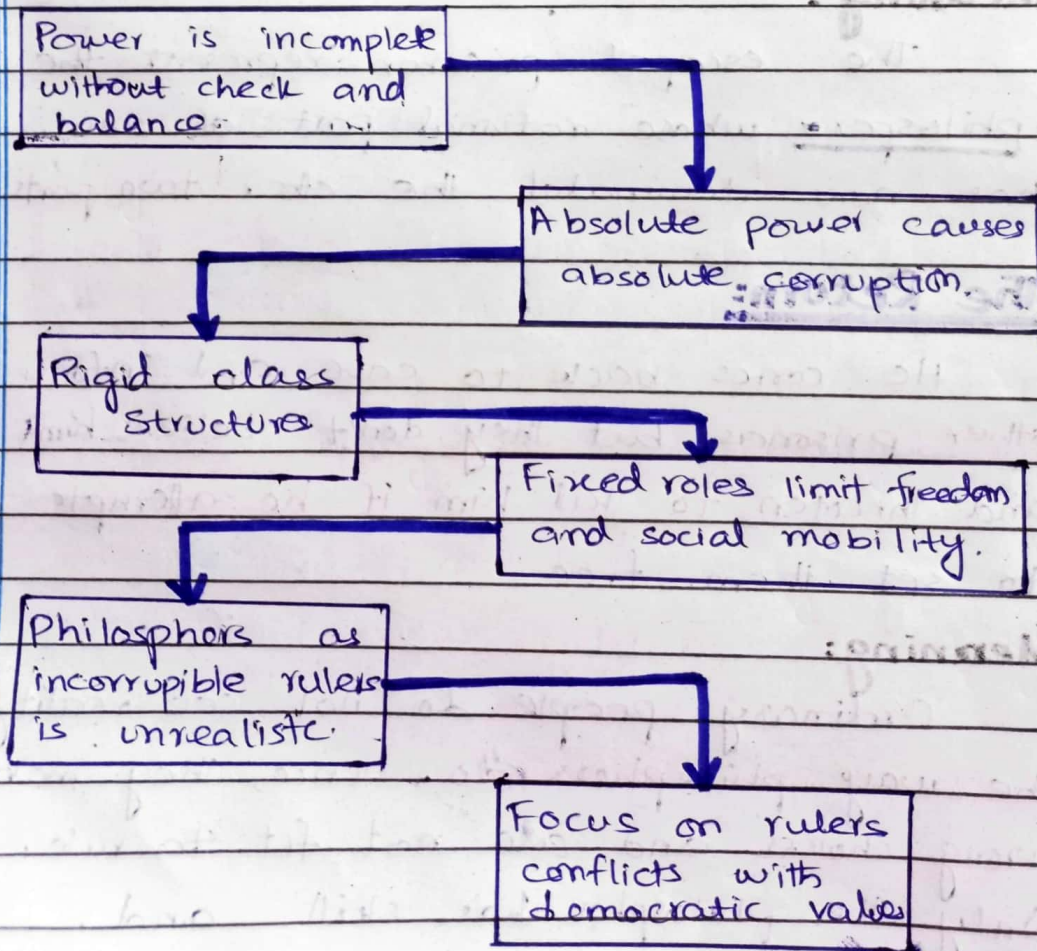 Power is incomplete
without check and
balance.
Absolute power causes
absolute corruption.
Rigid class
Structures
Fixed roles limit freedom
and social mobility.
Philosphors as
incorrupible rulers
is unrealistc.
Focus on rulers
conflicts with
democratic values